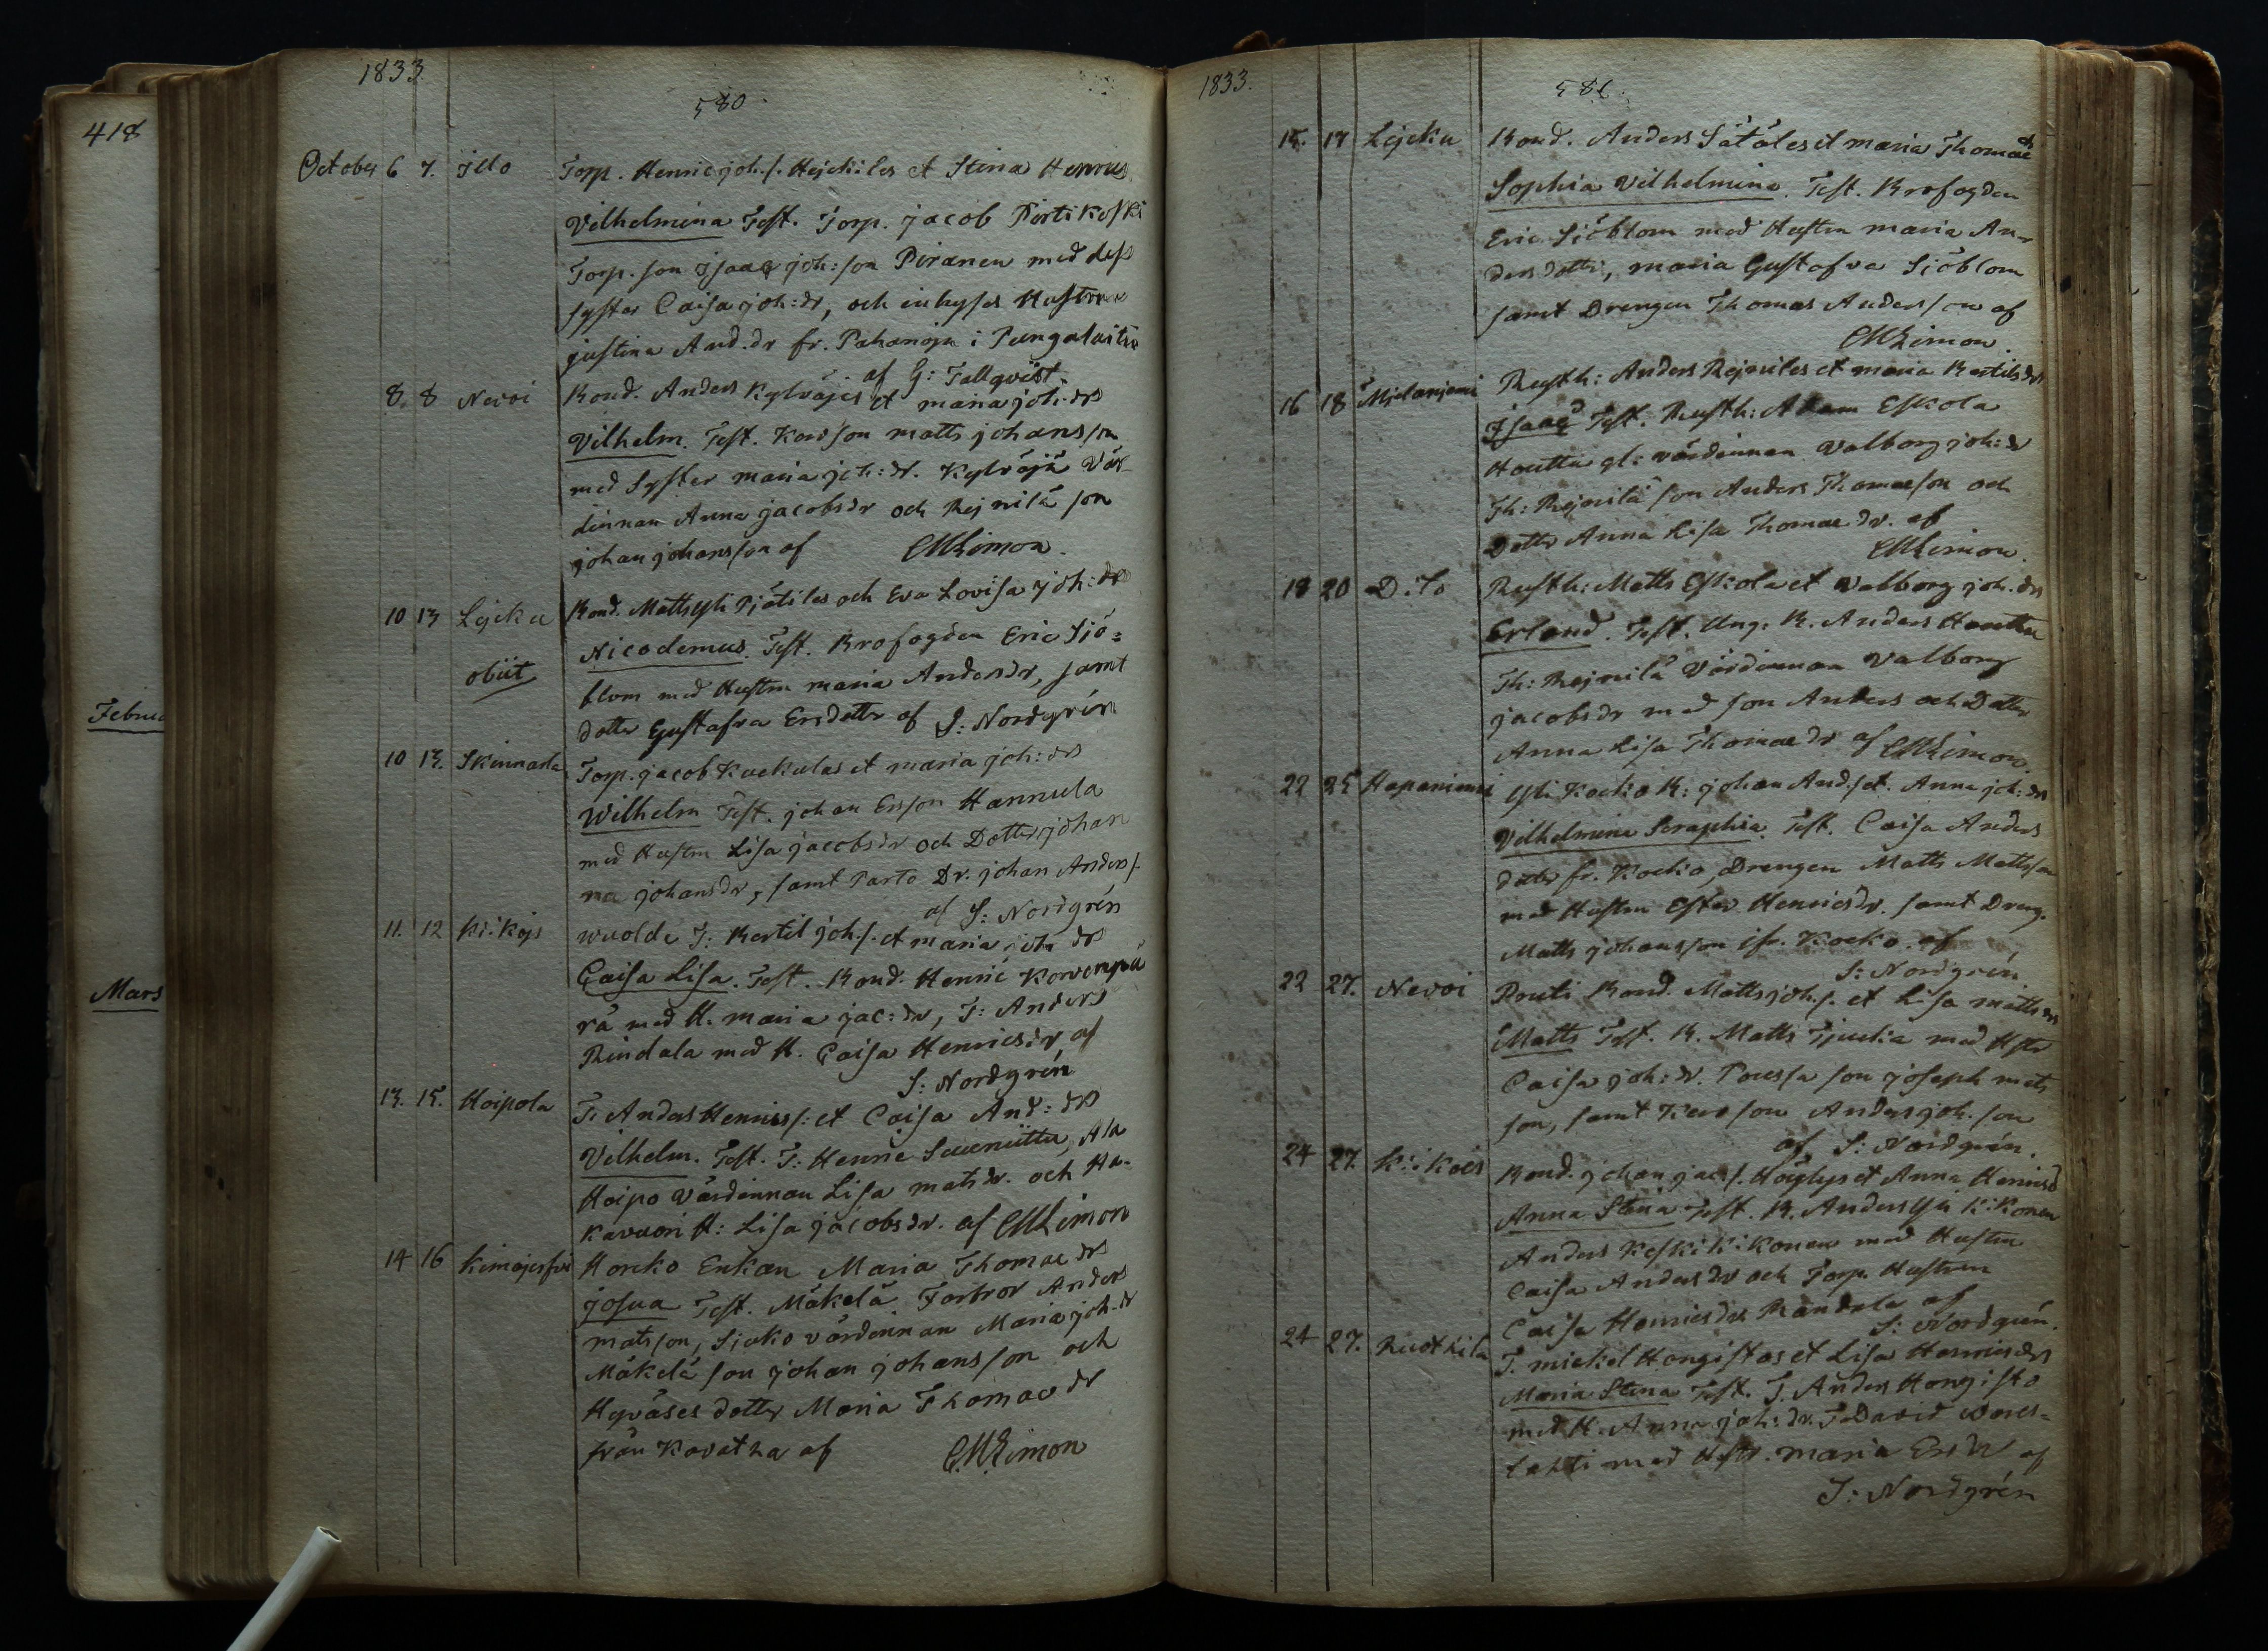 418
Februa
Mars
1833
580.
October 6 7. Jllo Torp. Henric joh.s. Hejckiles et Stina Henries
Vilhelmina Test. Torp. jacob Pirtikoski
Torp. son Jsaac joh:son Piranen med dess
syster Caisa joh:dr, och inhyses Hustrun
justina And.dr fr. Pahanoja i Pungalaitio
af G: Tallqvist.
8. 8 Nevoi Bond. Anders Kylväjes et maria joh.drs
Vilhelm. Test. Kavson matts johansson
med Syster maria joh:dr. Kylväjä Vär-
dinnan Anna jacobsdr och Rejnilä son
johan johansson af CMLimon.
10 13 Lejcku Bond. Matts yli Pjätiles och Eva Lovisa joh:drs
obiit Nicodemus. Test. Brofogden Eric Siö=
blom med Hustru maria Andersdr, samt
dotter Gustafva Ersdotter af S: Nordgrén
10 13. Skinnarla Torp. jacob Kuckulas et maria joh:drs
Wilhelm Test. johan Ersson Hannula
med Hustru Lisa jacobsdr och Dotter johan
na johansdr, samt Parto Dr. johan Anders s.
af S: Nordgrén
11. 12 Kikojs wuolde T: Bertil joh.s. et maria joh drs
Caisa Lisa. Test. Bond. Henric Korvenpä
rä med H. maria jac:dr, T: Anders
Rindala med H. Caisa Henricsdr af
S: Nordgrén
13. 15. Hoipola T. Anders Henrics s: et Caisa And:drs
Vilhelm. Test. T: Henric Sauenitta, Ala
Hoipo Värdinnan Lisa matsdr. och Ha-
kavuori H: Lisa jacobsdr. af CMLimon
14 16 Kimajerfvi Horcko Enkan Maria Thomae drs
josua Test. Mäkelä Farbror Anders
matsson, Siuko värdinnan Maria joh.dr
Mäkelä son johan johansson och
Hyväses dotter Maria Thomae dr
från Kavatna af CMLimon
1833.
581.
15. 17 Lejcku Bond. Anders Sätäles et maria Thomae drs
Sophia Vilhelmina. Test. Brofogden
Eric Siöblom med Hustru maria An-
ders dotter, maria Gustafva Siöblom
samt Drengen Thomas Andersson af
CMLimon.
16 18 Mjelanjemi Rusth: Anders Rejniles et maria Bertils drs
Jsaac Test. Rusth: Adam Eskola
Houttu gl: värdinnan Valborg joh:dr
Th: Rejnilä son Anders Thomaeson och
Dotter Anna Lisa Thomae dr. af
CMLimon.
18 20 D:to Rusth: Matts Eskola et Valborg joh.drs
Erland. Test. Ung. K. Anders Houttu
Th: Rejnilä Värdinnan Valborg
jacobsdr med son Anders och Dotter
Anna Lisa Thomae dr af CMLimon.
22 25 Hapaniemi Yli Kocko B: johan And.s et Anna joh:drs
Vilhelmina Seraphia. Test. Caisa Anders
dotter fr. Kocko, Drengen Matts Mattsson
med Hustru Ester Henricsdr. samt Dreng.
Matts johansson ifr. Kocko. af
S: Nordgrén
22 27. Nevoi Pouti Bond. Matts joh.s. et Lisa matts drs
Matts Test. B. Matts Tjuckia med Hstr
Caisa joh:dr. Poussa son joseph mats
son, samt Kavo son Anders joh.son
af S: Nordgrén.
24 27. Kikois Bond. johan jac.s. Höylys et Anna Henrics d
Anna Stina Test. B. Anders Yli Kikonen
Anders Keski Kikonen med Hustru
Caisa Andersdr och Torp. Hustrun
Caisa Henricsdr Randala af
S: Nordgrén.
24 27. Ruotzila T. mickel Hongistos et Lisa Henricsdrs
Maria Stina Test. T. Anders Hongisto
med H. Anna joh:dr. T. David wares=
lahti med Hstr. maria Ersdr af
S: Nordgrén